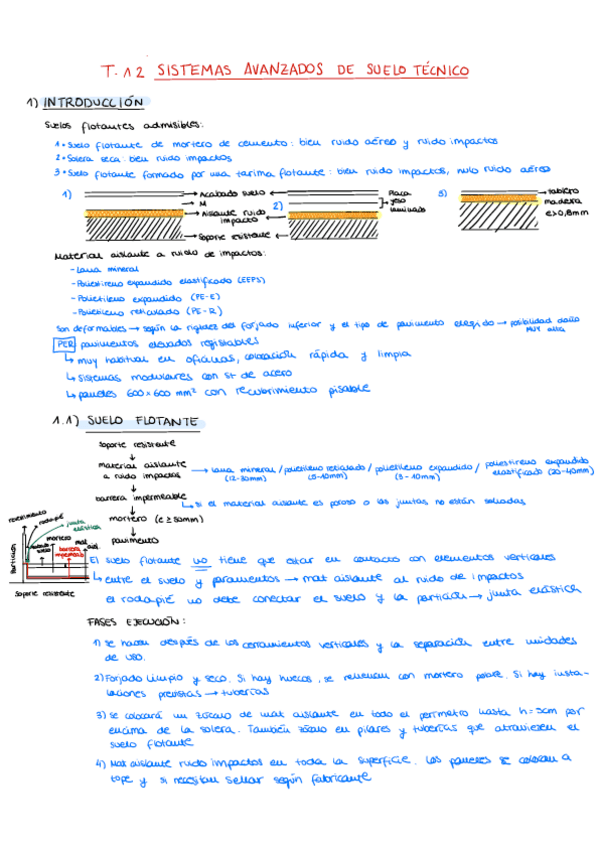 T.12 SISTEMAS AVANZADOS DE SUELO TÉCNICO
1) INTRODUCCIÓN
Suelos flotantes admisibles:
1• Suelo flotante de mortero de cemento: bien ruido aéreo y ruido impactos
2• Solera seca: bien ruido impactos
3• Suelo flotante formado por una tarima flotante: bien ruido impactos, nulo ruido aéreo
1) Acabado suelo
M
Aislante ruido impacto
Soporte existente
2) Placa yeso laminado
3) tablero madera
e>0,8mm
Material aislante a ruido de impactos:
- Lana mineral
- Poliestireno expandido elastificado (EEPS)
- Polietileno expandido (PE-E)
- Polietileno reticulado (PE-R)
Son deformables → según la rigidez del forjado inferior y el tipo de pavimento elegido → posibilidad daño muy alta
PER pavimentos elevados registrables
↳ muy habitual en oficinas, colocación rápida y limpia
↳ sistemas modulares con st de acero
↳ paneles 600x600 mm² con recubrimiento pisable
1.1) SUELO FLOTANTE
soporte resistente
↓
material aislante a ruido impactos → lana mineral / polietileno reticulado / polietileno expandido / poliestireno expandido elastificado (20-40mm)
(12-30mm) (5-10mm) (3-10mm)
↓
barrera impermeable
↳ si el material aislante es poroso o las juntas no están selladas
↓
mortero (e ≥ 50mm)
↓
pavimento
revestimiento
rodapié
junta elástica
mortero
mat aisl
barrera impermeable
Partición
Soporte resistente
El suelo flotante no tiene que estar en contacto con elementos verticales
↳ entre el suelo y paramentos → mat aislante al ruido de impactos
el rodapié no debe conectar el suelo y la partición → junta elástica
FASES EJECUCIÓN:
1) Se hacen después de los cerramientos verticales y la separación entre unidades
de uso.
2) Forjado limpio y seco. Si hay huecos, se rellenan con mortero pobre. Si hay insta-
laciones previstas → tuberías
3) Se colocará un zócalo de mat aislante en todo el perímetro hasta h=5cm por
encima de la solera. También zócalo en pilares y tuberías que atraviesen el
suelo flotante
4) Mat aislante ruido impactos en toda la superficie. Los paneles se colocan a
tope y si necesitan sellar según fabricante